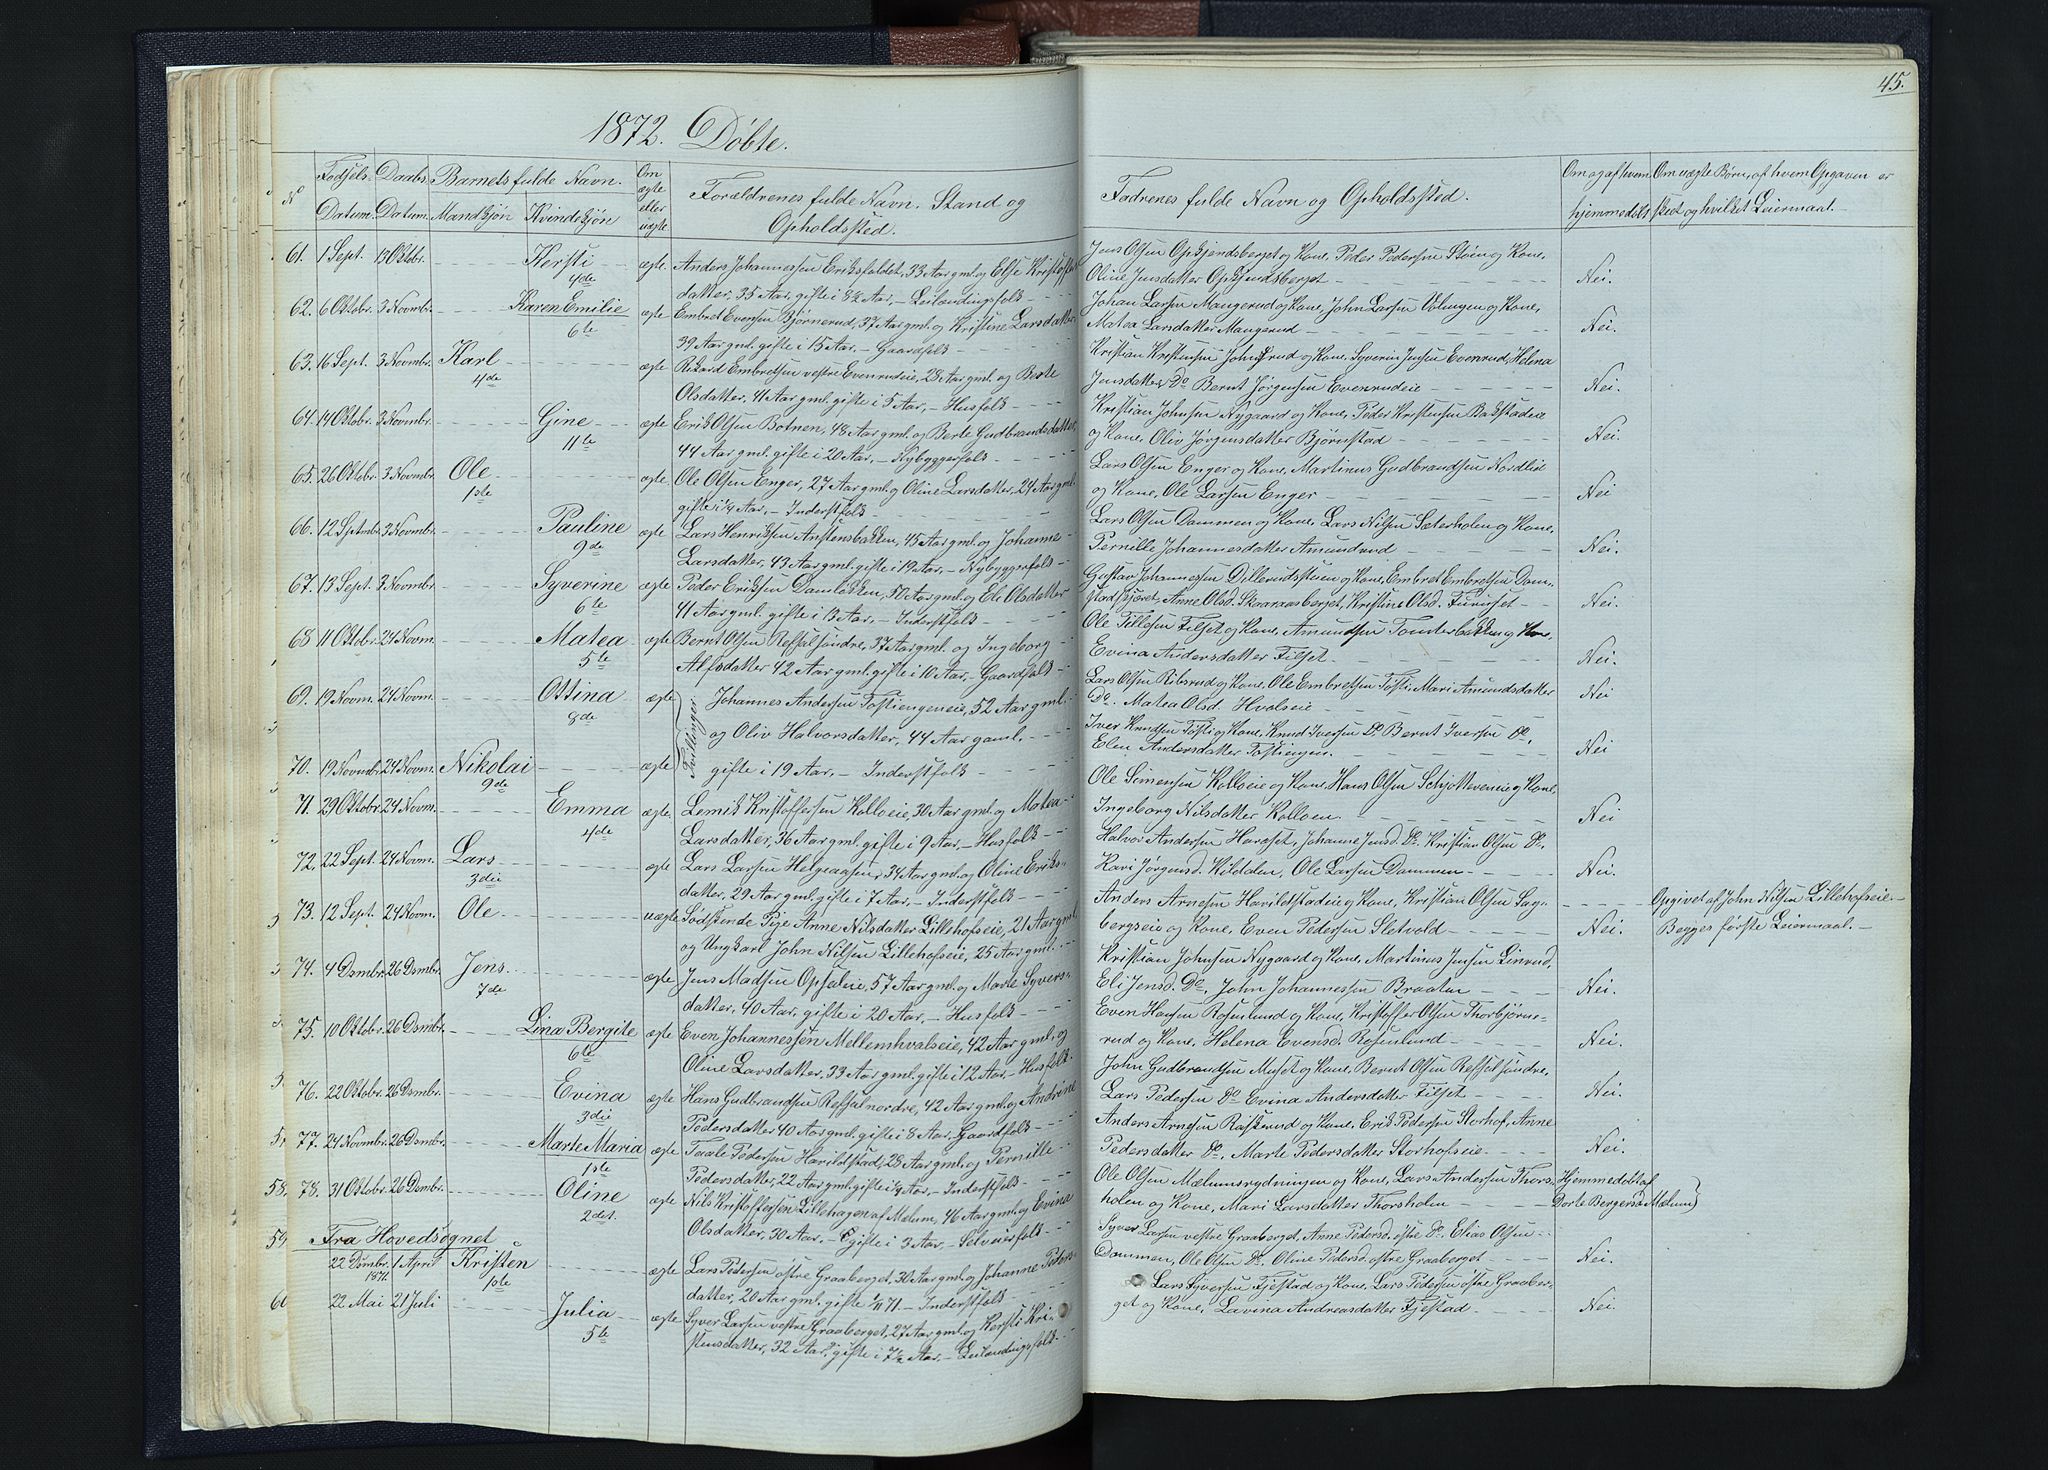 45.
1872. Döbte.
No
Födsels-Datum.
Daabs-Datum.
Barnets fulde Navn.
Mandkjön
Kvindekjön
Om ægte eller uægte
Forældrenes fulde Navn, Stand og
Opholdssted.
Fadrenes fulde Navn og Opholdssted.
Om og af hvem hjemmedöbt
Om uægte Börn, af hvem Opgaven er
sked og hvilket Leiermaal.
61. 1 Sept. 13 Oktbr. Kersti 4de ægte Anders Johannessen Eriksfaldet, 33 Aar gml. og Else Kristoffers-
datter, 35 Aar, gifte i 8½ Aar, - Leilændingsfolk
Jens Olsen Opkjendsberget og Kone, Peder Pedersen Stöen og Kone,
Oline Jensdatter Opkjendsberget Nei.
62. 6 Oktbr. 3 Novmbr. Karen Emilie 6te ægte Embret Evensen Björnerud, 37 Aar gml. og Kristine Larsdatter
39 Aar gml. gifte i 15 Aar, - Gaardfolk
Johan Larsen Mangerud og Kone, John Larsen Ulingen og Kone,
Matea Larsdatter Mangerud Nei.
63. 16 Sept. 3 Novmbr. Karl 4de ægte Rikard Embretsen vestre Evenrudeie, 28 Aar gml. og Berte
Olsdatter, 41 Aar gml. gifte i 5 Aar, - Husfolk
Kristian Kristensen Johnsrud og Kone, Syverin Jensen Evenrud, Helena
Jensdatter Do Bernt Jörgensen Evenrudeie Nei.
64. 14 Oktbr. 3 Novmbr. Gine 11te ægte Erik Olsen Botnen, 48 Aar gml. og Berte Gudbrandsdatter,
44 Aar gml. gifte i 20 Aar, - Nybyggerfolk
Kristian Johnsen Nygaard og Kone, Peder Kristensen Bakstadeie
og Kone, Oliv Jörgensdatter Björnstad Nei.
65. 26 Oktbr. 3 Novmbr. Ole 1ste ægte Ole Olsen Enger, 27 Aar gml. og Oline Larsdatter, 24 Aar gml.
gifte i ¼ Aar, - Inderstfolk
Lars Olsen Enger og Kone, Martinus Gudbrandsen Nordlie
og Kone, Ole Larsen Enger Nei
66. 12 Septmbr. 3 Novmbr. Pauline 9de ægte Lars Henriksen Anstensbakken, 45 Aar gml. og Johanne
Larsdatter, 43 Aar gml. gifte i 19 Aar, - Nybyggerfolk
Lars Olsen Dammen og Kone, Lars Nilsen Sæterholen og Kone,
Pernille Johannesdatter Amundrud Nei.
67. 13 Sept. 3 Novmbr. Syverine 6te ægte Peder Eriksen Damlökken, 50 Aar gml. og Eli Olsdatter
41 Aar gml. gifte i 13 Aar, - Inderstfolk
Gustav Johannesen Dillerudstuen og Kone, Embret Embretsen Dam-
stadkjæret, Anne Olsd. Skaraasberget, Kristine Olsd. Furuset Nei.
68 11 Oktbr. 24 Novm. Matea 5te ægte Bernt Olsen Refsalsöndre, 37 Aar gml. og Ingeborg
Alfsdatter 42 Aar gml. gifte i 10 Aar, - Gaardfolk
Ole Tillesen Filset og Kone, Amundsen Tomterbakken og Kone
Evina Andersdatter Filset Nei.
69. 19 Novm. 24 Novm. Ossina 8de ægte Tvillinger Johannes Andersen Tostiengeneie, 52 Aar gml.
og Oliv Halvorsdatter, 44 Aar gaml.
Lars Olsen Ribsrud og Kone, Ole Embretsen Tosti, Mari Amundsdatter
Do. Matea Olsd. Hvalseie Nei
70. 19 Novmbr. 24 Novm. Nikolai 9de ægte gifte i 19 Aar, - Inderstfolk
Iver Knudsen Tosti og Kone, Knud Iversen Do Bernt Iversen Do,
Elen Andersdatter Tostiengen. Nei
71. 29 Oktbr. 24 Novm. Emma 4de ægte Lemik Kristoffersen Kolloeie, 30 Aar gml. og Matea
Larsdatter, 36 Aar gml. gifte i 9 Aar, - Husfolk
Ole Simensen Kolloeie og Kone, Hans Olsen Schjotteveneie og Kone,
Ingeborg Nilsdatter Kolloen. Nei
72. 22 Sept. 24 Novm. Lars 3die ægte Lars Larsen Helgeaasen, 34 Aar gml. og Oline Eriks-
datter, 29 Aar gml. gifte i 7 Aar, - Inderstfolk
Halvor Andersen Haraset, Johanne Jensd. Do. Kristian Olsen Do.
Kari Jörgensd. Kildalen, Ole Larsen Dammen Nei.
73. 12 Sept. 24 Novm. Ole uægte Södskende Pige Anne Nilsdatter Lillehofseie, 21 Aar gml.
og Ungkarl John Nilsen Lillehofseie, 25 Aar gml.
Anders Arnesen Harildstadeie og Kone, Kristian Olsen Sag-
bergseie og Kone, Even Pedersen Sletvold Nei. Opgivet af John Nilsen Lillehofseie.
Begges förste Leiermaal.
74. 4 Dsmbr. 26 Dsmbr. Jens 7de ægte Jens Madsen Opsaleie, 57 Aar gml. og Marte Syvers-
datter, 40 Aar, gifte i 20 Aar, - Husfolk
Kristian Johnsen Nygaard og Kone, Martinus Jensen Linrud,
Eli Jensd. Do, John Johannessen Braaten Nei.
75. 10 Oktbr. 26 Dsmbr. Lina Bergite 6te ægte Even Johannessen Mellemhvalseie, 42 Aar gml. og
Oline Larsdatter, 33 Aar gml. gifte i 12 Aar, - Husfolk.
Even Hansen Rosenlund og Kone, Kristoffer Olsen Thorbjörns-
rud og Kone, Helena Evensd. Rosenlund Nei.
76. 22 Oktbr. 26 Dsmbr. Evina 3die ægte Hans Gudbrandsen Refsalnordre, 42 Aar gml. og Andrine
Pedersdatter 40 Aar gml. gifte i 8 Aar, Gaardfolk
John Gudbrandsen Muset og Kone, Bernt Olsen Refsalsöndre,
Lars Pedersen Do Evina Andersdatter Filset Nei.
77. 24 Novmbr. 26 Dsmbr. Marte Maria 1ste ægte Taale Pedersen Harildstad, 28 Aar gml. og Pernille
Pedersdatter, 22 Aar gml. gifte i ¼ Aar, - Inderstfolk
Anders Arnesen Raskerud og Kone, Erik Pedersen Storhof, Anne
Pedersdatter Do, Marte Pedersdatter Storhofseie Nei.
58. 78. 31 Oktbr. 26 Dsmbr. Oline 2det. ægte Nils Kristoffersen Lillehagen af Mælum, 46 Aar gml. og Evina
Olsdatter, 30 Aar, - gifte i 3 Aar - Selveierfolk
Ole Olsen Mælumsrydningen og Kone, Lars Andersen Thors-
holen og Kone, Mari Larsdatter Thorsholen Hjemmedöbt af
Dorte Bergersd. Mælum)
59 Fra Hovedsognet
22 Dsmbr. 1871. 1 April Kristen 1ste ægte Lars Pedersen östre Graaberget, 30 Aar gml. og Johanne Peders-
datter, 20 Aar gml. gifte 71 - Inderstfolk
Syver Larsen vestre Graaberget, Anne Pedersd. östre Do. Elias Olsen
Dammen, Ole Olsen Do. Oline Pedersd. östre Graaberget Nei.
60 22 Mai 21 Juli Julia 5te ægte Syver Larsen vestre Graaberget, 27 Aar gml. og Kersti Kri-
stensdatter, 32 Aar, gifte i 7½ Aar, - Leilændingsfolk.
Lars Syversen Fjestad og Kone, Lars Pedersen östre Graaber-
get og Kone, Lavina Andreasdatter Fjestad Nei.